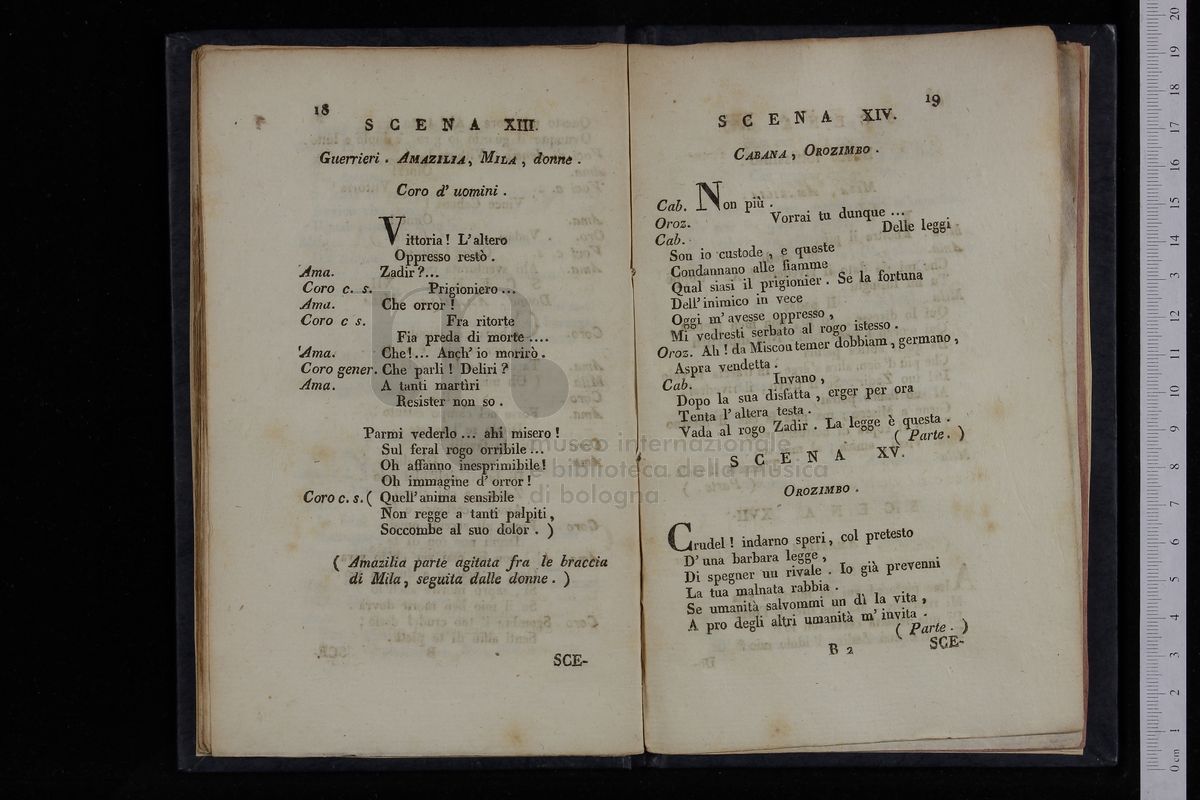 18
SCENA XIII.
Guerrieri. AMAZILIA, MILA, donne.
Coro d' uomini.
Vittoria! L'altero
Oppresso restò.
Ama. Zadir?...
Coro c. s. Prigioniero...
Ama. Che orror!
Coro c s. Fra ritorte
Fia preda di morte....
Ama. Che!... Anch' io morirò.
Coro gener. Che parli! Deliri?
Ama. A tanti martìri
Resister non so.
Parmi vederlo... ahi misero!
Sul feral rogo orribile...
Oh affanno inesprimibile!
Oh immagine d' orror!
Coro c. s. ( Quell' anima sensibile
Non regge a tanti palpiti,
Soccombe al suo dolor. )
( Amazilia parte agitata fra le braccia
di Mila, seguita dalle donne. )
SCE-
19
SCENA XIV.
CABANA, OROZIMBO.
Cab. Non più.
Oroz. Vorrai tu dunque...
Cab. Delle leggi
Son io custode, e queste
Condannano alle fiamme
Qual siasi il prigionier. Se la fortuna
Dell' inimico in vece
Oggi m' avesse oppresso,
Mi vedresti serbato al rogo istesso.
Oroz. Ah! da Miscou temer dobbiam, germano,
Aspra vendetta.
Cab. Invano,
Dopo la sua disfatta, erger per ora
Tenta l' altera testa.
Vada al rogo Zadir. La legge è questa.
( Parte. )
SCENA XV.
OROZIMBO.
Crudel! indarno speri, col pretesto
D' una barbara legge,
Di spegner un rivale. Io già prevenni
La tua malnata rabbia.
Se umanità salvommi un dì la vita,
A pro degli altri umanità m' invita.
( Parte. )
B 2
SCE-
museo internazionale
e biblioteca della musica
di bologna
0 cm 1 2 3 4 5 6 7 8 9 10 11 12 13 14 15 16 17 18 19 20